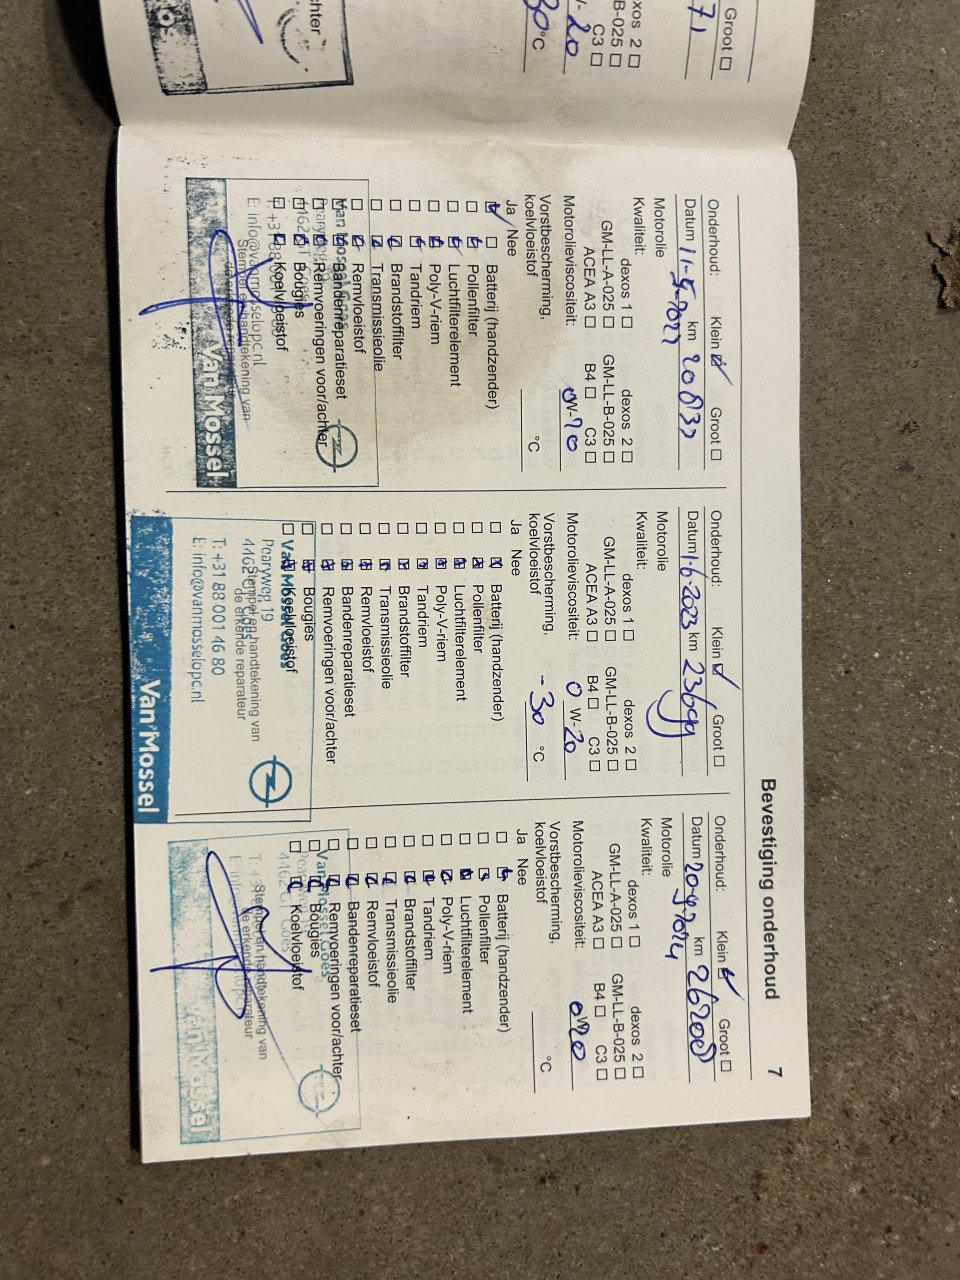 Groot ☐
71
xos 2 ☐
B-025 ☐
C3 ☐
W- 20
30 °C
chter
Bevestiging onderhoud 7
Onderhoud: Klein ☑ Groot ☐
Datum 11-5-2022 km 20833
Motorolie
Kwaliteit: dexos 1 ☐ dexos 2 ☐
GM-LL-A-025 ☐ GM-LL-B-025 ☐
ACEA A3 ☐ B4 ☐ C3 ☐
Motorolieviscositeit: 0W-20
Vorstbescherming,
koelvloeistof °C
Ja Nee
☑ ☐ Batterij (handzender)
☐ ☑ Pollenfilter
☐ ☑ Luchtfilterelement
☐ ☑ Poly-V-riem
☐ ☑ Tandriem
☐ ☑ Brandstoffilter
☐ ☑ Transmissieolie
☐ ☑ Remvloeistof
☐ ☑ Bandenreparatieset
☐ ☑ Remvoeringen voor/achter
☐ ☑ Bougies
☐ ☑ Koelvloeistof
Van Mossel Goes
Stempel en handtekening van
de erkende reparateur
Van Mossel
Onderhoud: Klein ☑ Groot ☐
Datum 1-6-2023 km 23699
Motorolie
Kwaliteit: dexos 1 ☐ dexos 2 ☐
GM-LL-A-025 ☐ GM-LL-B-025 ☐
ACEA A3 ☐ B4 ☐ C3 ☐
Motorolieviscositeit: 0 W-20
Vorstbescherming,
koelvloeistof -30 °C
Ja Nee
☐ ☑ Batterij (handzender)
☐ ☑ Pollenfilter
☐ ☑ Luchtfilterelement
☐ ☑ Poly-V-riem
☐ ☑ Tandriem
☐ ☑ Brandstoffilter
☐ ☑ Transmissieolie
☐ ☑ Remvloeistof
☐ ☑ Bandenreparatieset
☐ ☑ Remvoeringen voor/achter
☐ ☑ Bougies
☐ ☑ Koelvloeistof
Van Mossel Goes
Pearyweg 19
4462 Goes
Stempel en handtekening van
de erkende reparateur
T: +31 88 001 46 80
E: info@vanmosselopc.nl
Van Mossel
Onderhoud: Klein ☑ Groot ☐
Datum 20-9-2024 km 26208
Motorolie
Kwaliteit: dexos 1 ☐ dexos 2 ☐
GM-LL-A-025 ☐ GM-LL-B-025 ☐
ACEA A3 ☐ B4 ☐ C3 ☐
Motorolieviscositeit: 0W20
Vorstbescherming,
koelvloeistof °C
Ja Nee
☐ ☑ Batterij (handzender)
☐ ☑ Pollenfilter
☐ ☑ Luchtfilterelement
☐ ☑ Poly-V-riem
☐ ☑ Tandriem
☐ ☑ Brandstoffilter
☐ ☑ Transmissieolie
☐ ☑ Remvloeistof
☐ ☑ Bandenreparatieset
☐ ☑ Remvoeringen voor/achter
☐ ☑ Bougies
☐ ☑ Koelvloeistof
Van Mossel Goes
Stempel en handtekening van
de erkende reparateur
Van Mossel